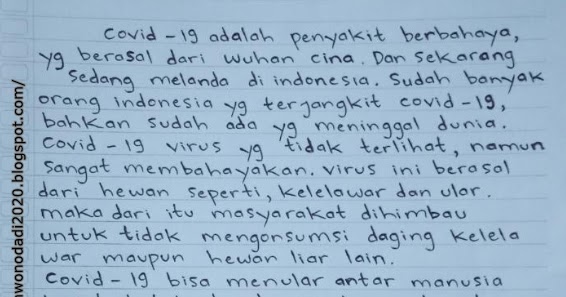 Covid-19 adalah penyakit berbahaya,
yg berasal dari wuhan cina. Dan sekarang
sedang melanda di indonesia. Sudah banyak
orang indonesia yg terjangkit covid-19,
bahkan sudah ada yg meninggal dunia.
Covid-19 virus yg tidak terlihat, namun
sangat membahayakan. virus ini berasal
dari hewan seperti, kelelawar dan ular.
maka dari itu masyarakat dihimbau
untuk tidak mengonsumsi daging kelela
war maupun hewan liar lain.
Covid-19 bisa menular antar manusia
wonodadi2020.blogspot.com/